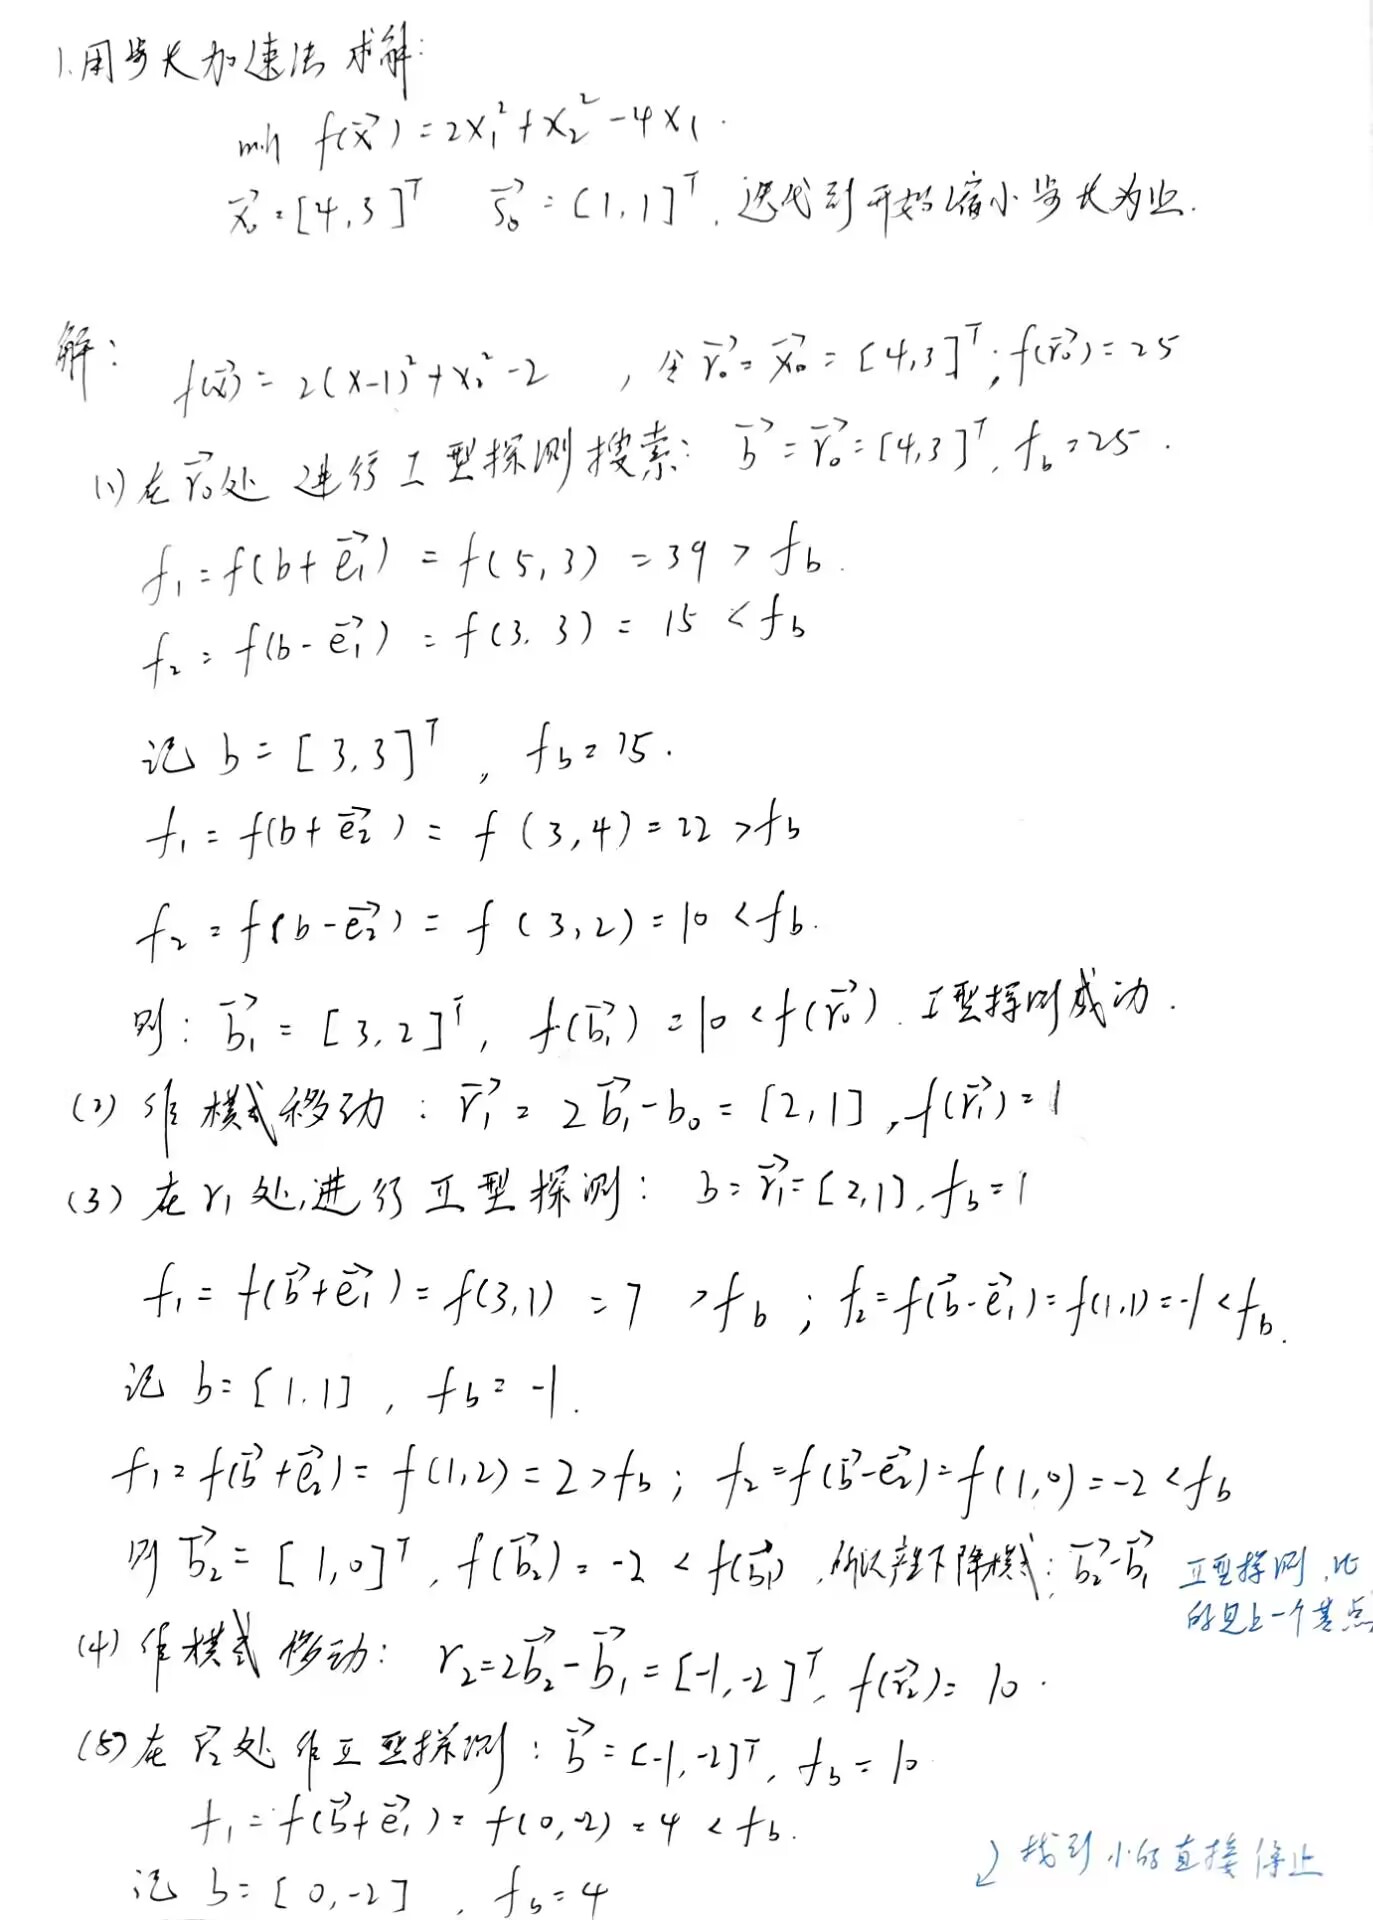 1.用步长加速法求解:
min f(x⃗)=2x₁²+x₂²-4x₁.
x⃗₀=[4,3]ᵀ s⃗₀=[1,1]ᵀ.迭代到开始缩小步长为止.
解: f(x⃗)=2(x-1)²+x₂²-2,令r⃗₀=x⃗₀=[4,3]ᵀ;f(r⃗₀)=25
(1)在r⃗₀处进行I型探测搜索:b⃗=r⃗₀=[4,3]ᵀ,f_b=25.
f₁=f(b+e⃗₁)=f(5,3)=39>f_b.
f₂=f(b-e⃗₁)=f(3,3)=15<f_b
记b=[3,3]ᵀ,f_b=15.
f₁=f(b+e⃗₂)=f(3,4)=22>f_b
f₂=f(b-e⃗₂)=f(3,2)=10<f_b.
则:b⃗₁=[3,2]ᵀ,f(b⃗₁)=10<f(r⃗₀).I型探测成功.
(2)作模式移动:r⃗₁=2b⃗₁-b₀=[2,1],f(r⃗₁)=1
(3)在r₁处进行II型探测:b=r⃗₁=[2,1],f_b=1
f₁=f(b⃗+e⃗₁)=f(3,1)=7>f_b;f₂=f(b⃗-e⃗₁)=f(1,1)=-1<f_b.
记b=[1,1],f_b=-1.
f₁=f(b⃗+e⃗₂)=f(1,2)=2>f_b;f₂=f(b⃗-e⃗₂)=f(1,0)=-2<f_b
则b⃗₂=[1,0]ᵀ,f(b⃗₂)=-2<f(b⃗₁),所以产生下降模式:b⃗₂-b⃗₁
II型探测,比
的是上一个基点
(4)作模式移动:r₂=2b⃗₂-b⃗₁=[-1,-2]ᵀ,f(r⃗₂)=10.
(5)在r⃗₂处作II型探测:b⃗=[-1,-2]ᵀ,f_b=10
f₁=f(b⃗+e⃗₁)=f(0,-2)=4<f_b.
找到小的直接停止
记b=[0,-2],f_b=4